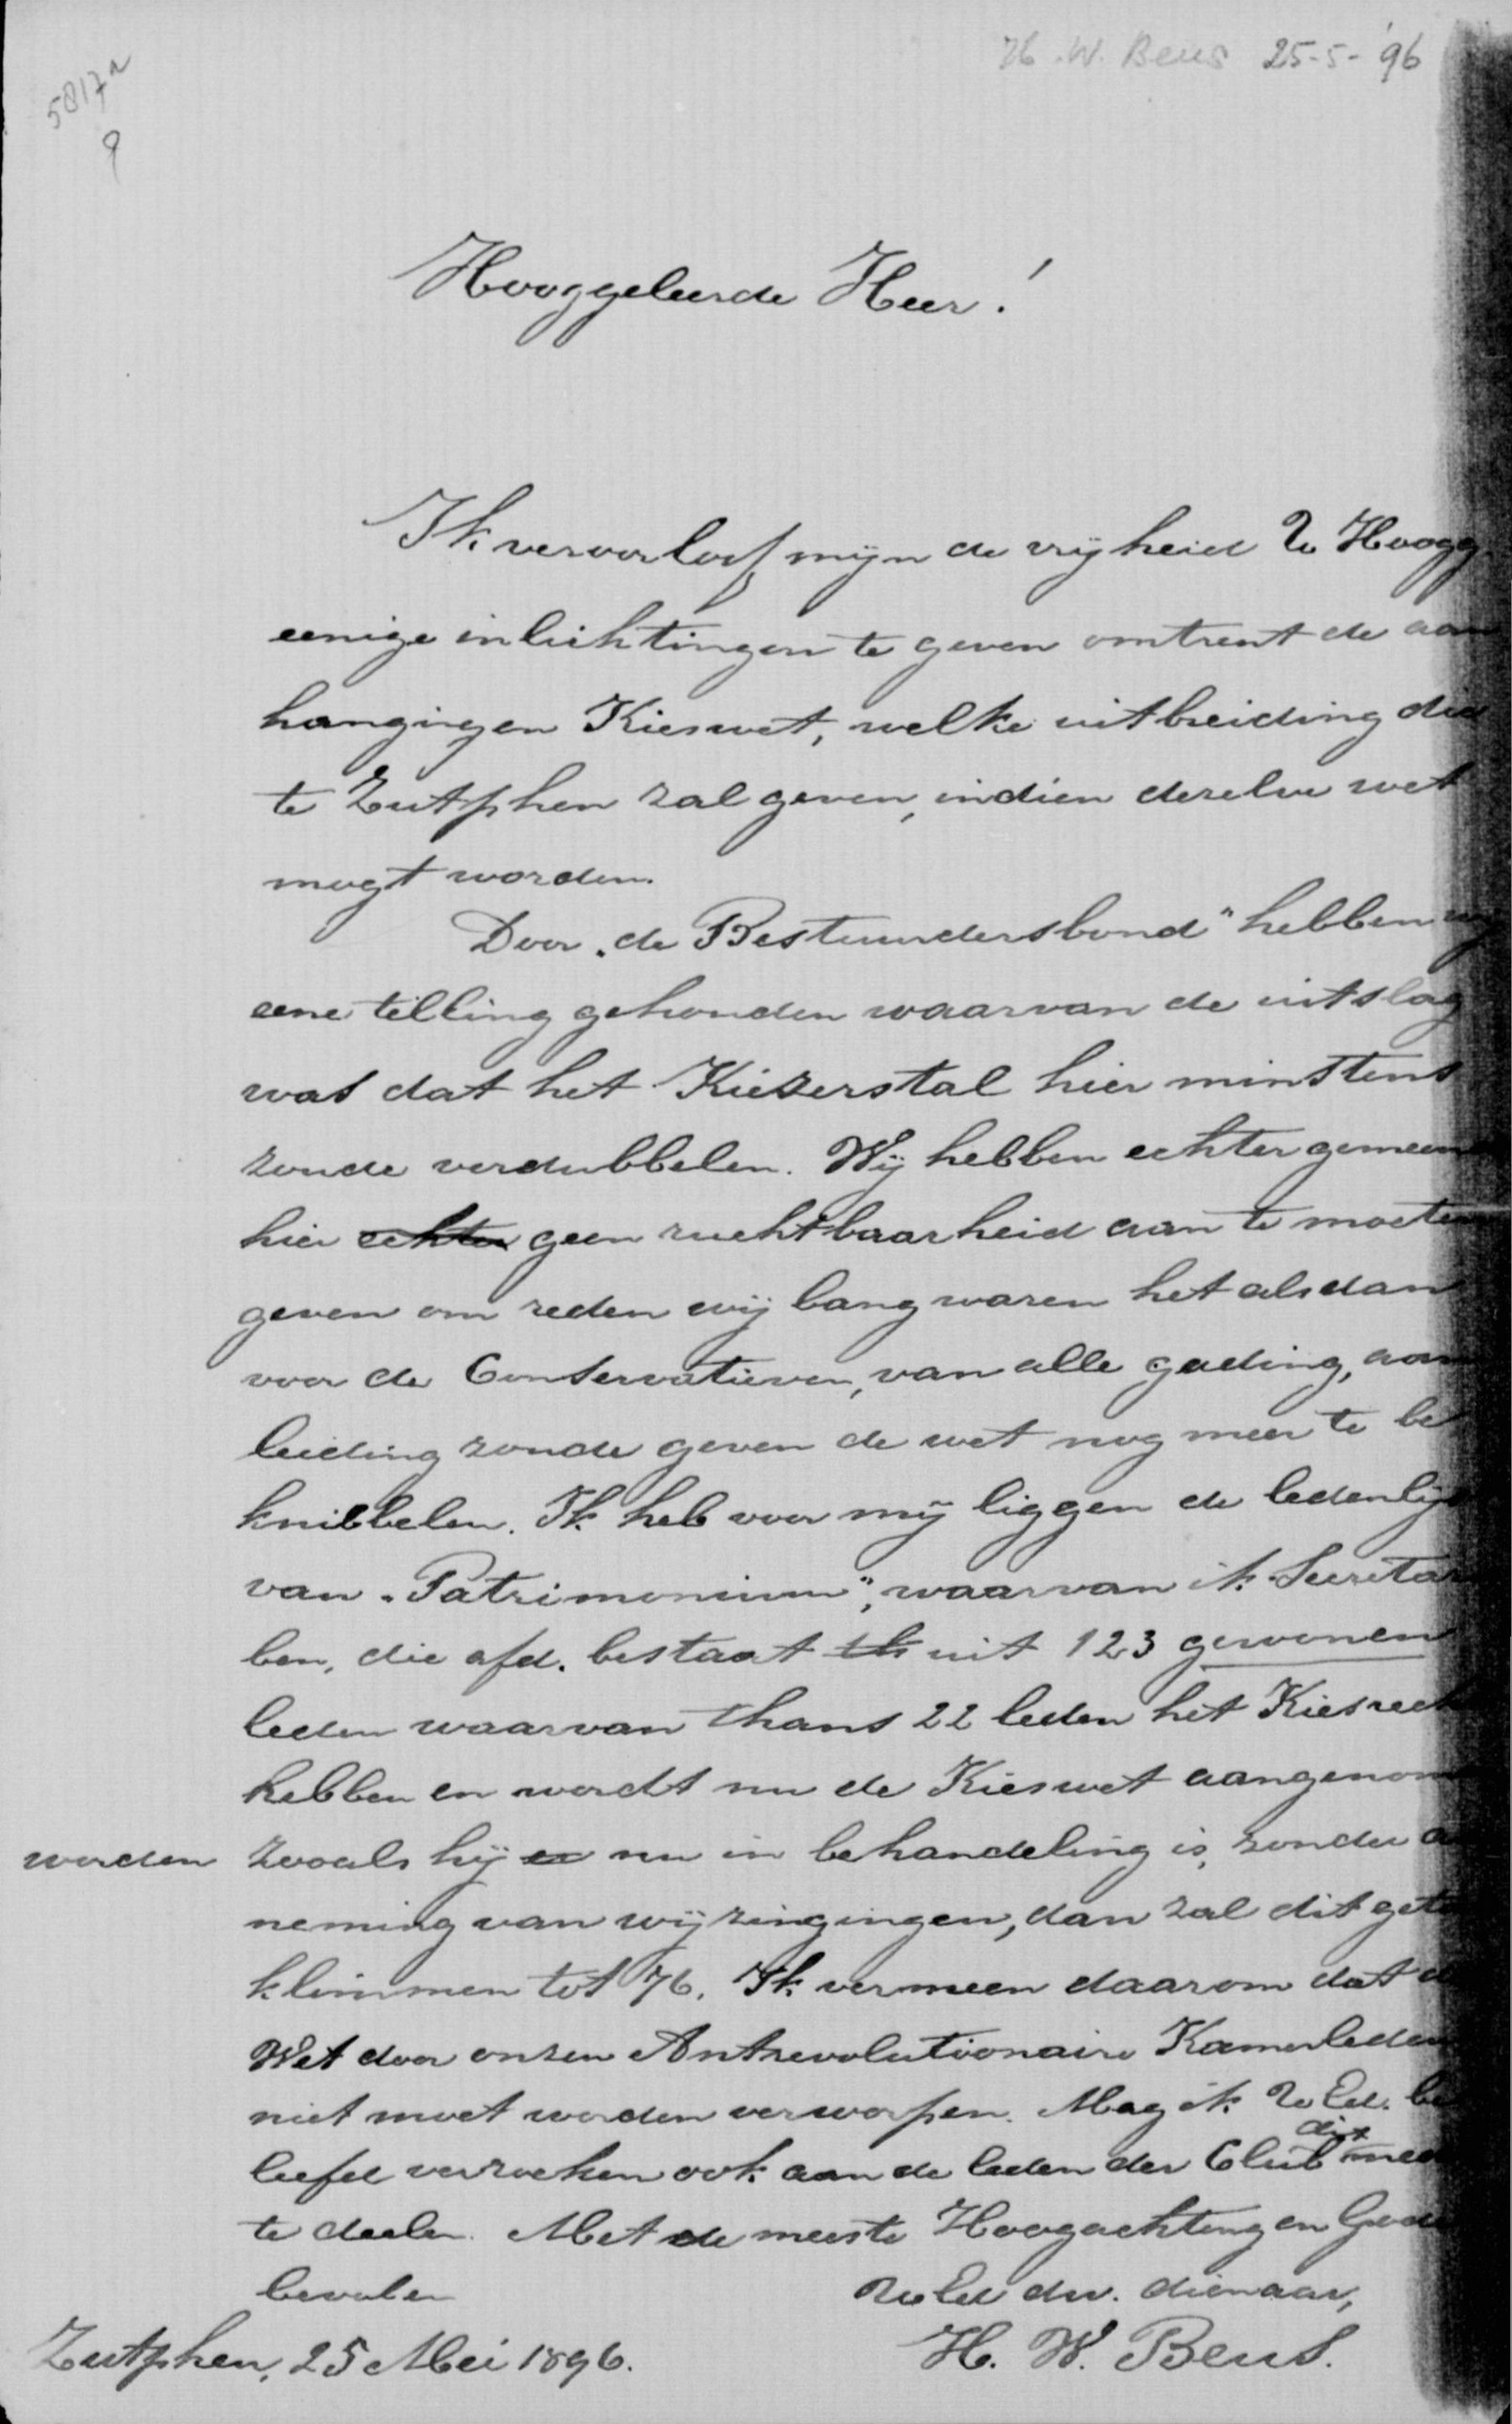 H. W. Beus 25-5-'96
5817a
9
Hooggeleerde Heer!
Ik veroorloof mijn de vrijheid U Hoogg.
eenige inlichtingen te geven omtrent de aan
hangingen Kieswet, welke uitbreiding die
te Zutphen zal geven, indien dezelve wet
mogt worden.
Door „de Bestuurdersbond" hebben wij
eene telling gehouden waarvan de uitslag
was dat het Kiezerstal hier minstens
zoude verdubbelen. Wij hebben echter gemeend
hier echter geen ruchtbaarheid aan te moeten
geven om reden wij bang waren het alsdan
voor de Conservatieven, van alle gading, aan
leiding zoude geven de wet nog meer te be
knibbelen. Ik heb voor mij liggen de ledenlijst
van „Patrimonium", waarvan ik Secretar
ben, die afd. bestaat uit 123 gewonen
leden waarvan thans 22 leden het Kiesrecht
hebben en wordt nu de Kieswet aangenom
worden zooals hij nu in behandeling is, zonder
neming van wijzingingen, dan zal dit geta
klimmen tot 76. Ik vermeen daarom dat de
Wet door onzen Antrevolutionaire Kamerleden
niet moet worden verworpen. Mag ik U Ed. be
leefd verzoeken ook aan de leden der Club dit mede
te deelen. Met de meeste Hoogachting en Gode
bevolen
UwEd dw. dienaar,
Zutphen, 25 Mei 1896.
H. W. Beus.